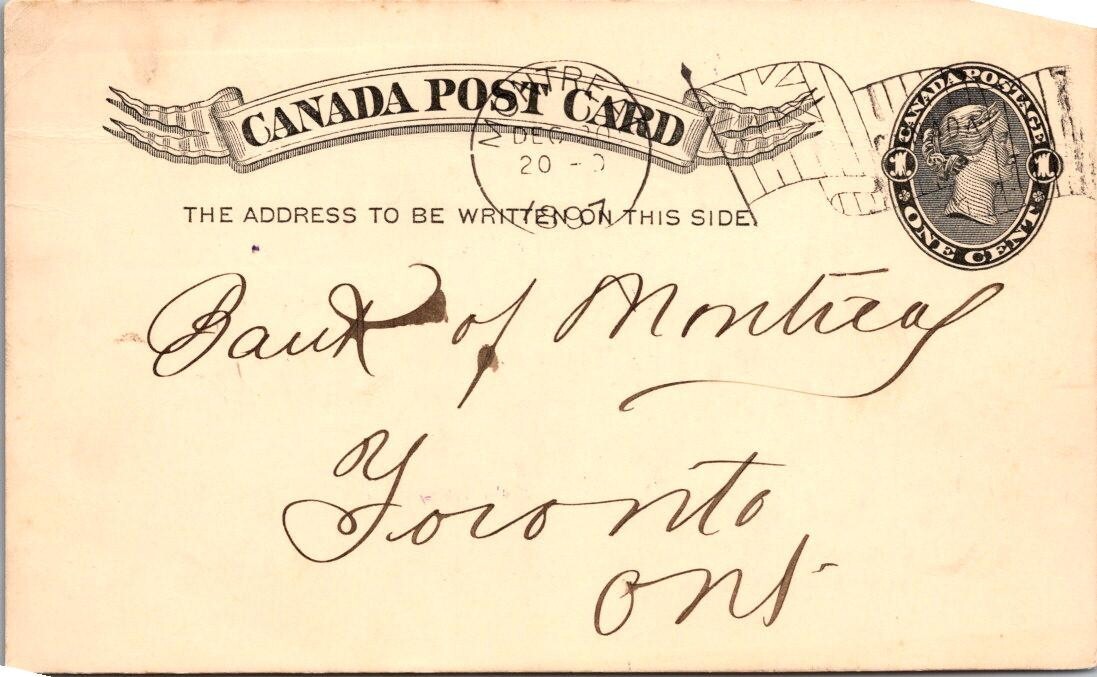 CANADA POST CARD
MONTREAL
DEC
20 - 0
1897
CANADA POSTAGE
1 1
ONE CENT
THE ADDRESS TO BE WRITTEN ON THIS SIDE.
Bank of Montreal
Toronto
Ont